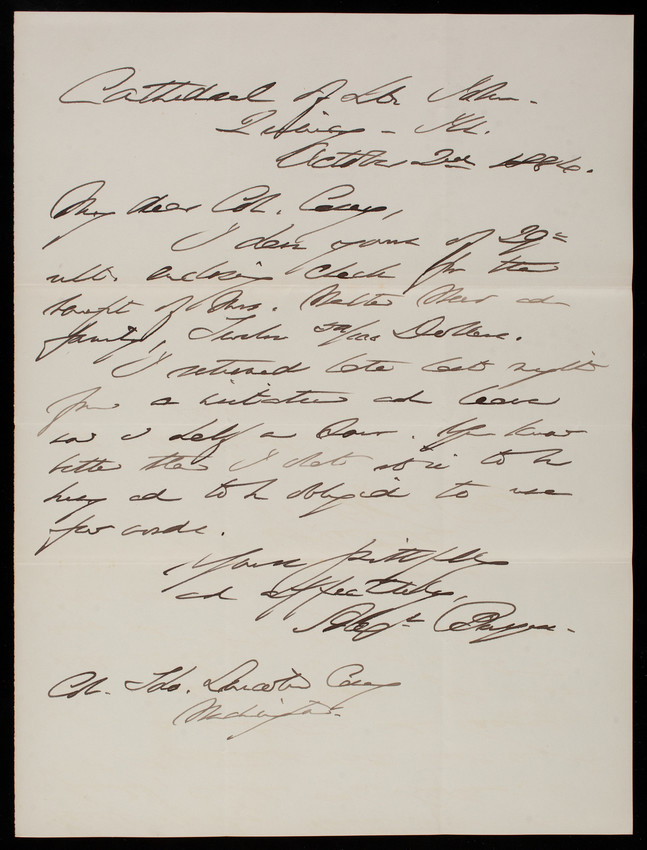 Cathedral of St. John -
Quincy - Ill.
October 2nd 1886.
My dear Col. Casey,
I have yours of 29th
ult. enclosing check for the
benefit of Mrs. Walter and
family, Twelve Dollars.
I returned late last night
from a visitation and leave
in a half an hour. You know
better than I it is to be
busy and to be obliged to use
few words.
Yours faithfully
and affectionately,
Alexr. Burgess.
Col. Tho. Lincoln Casey
Washington.